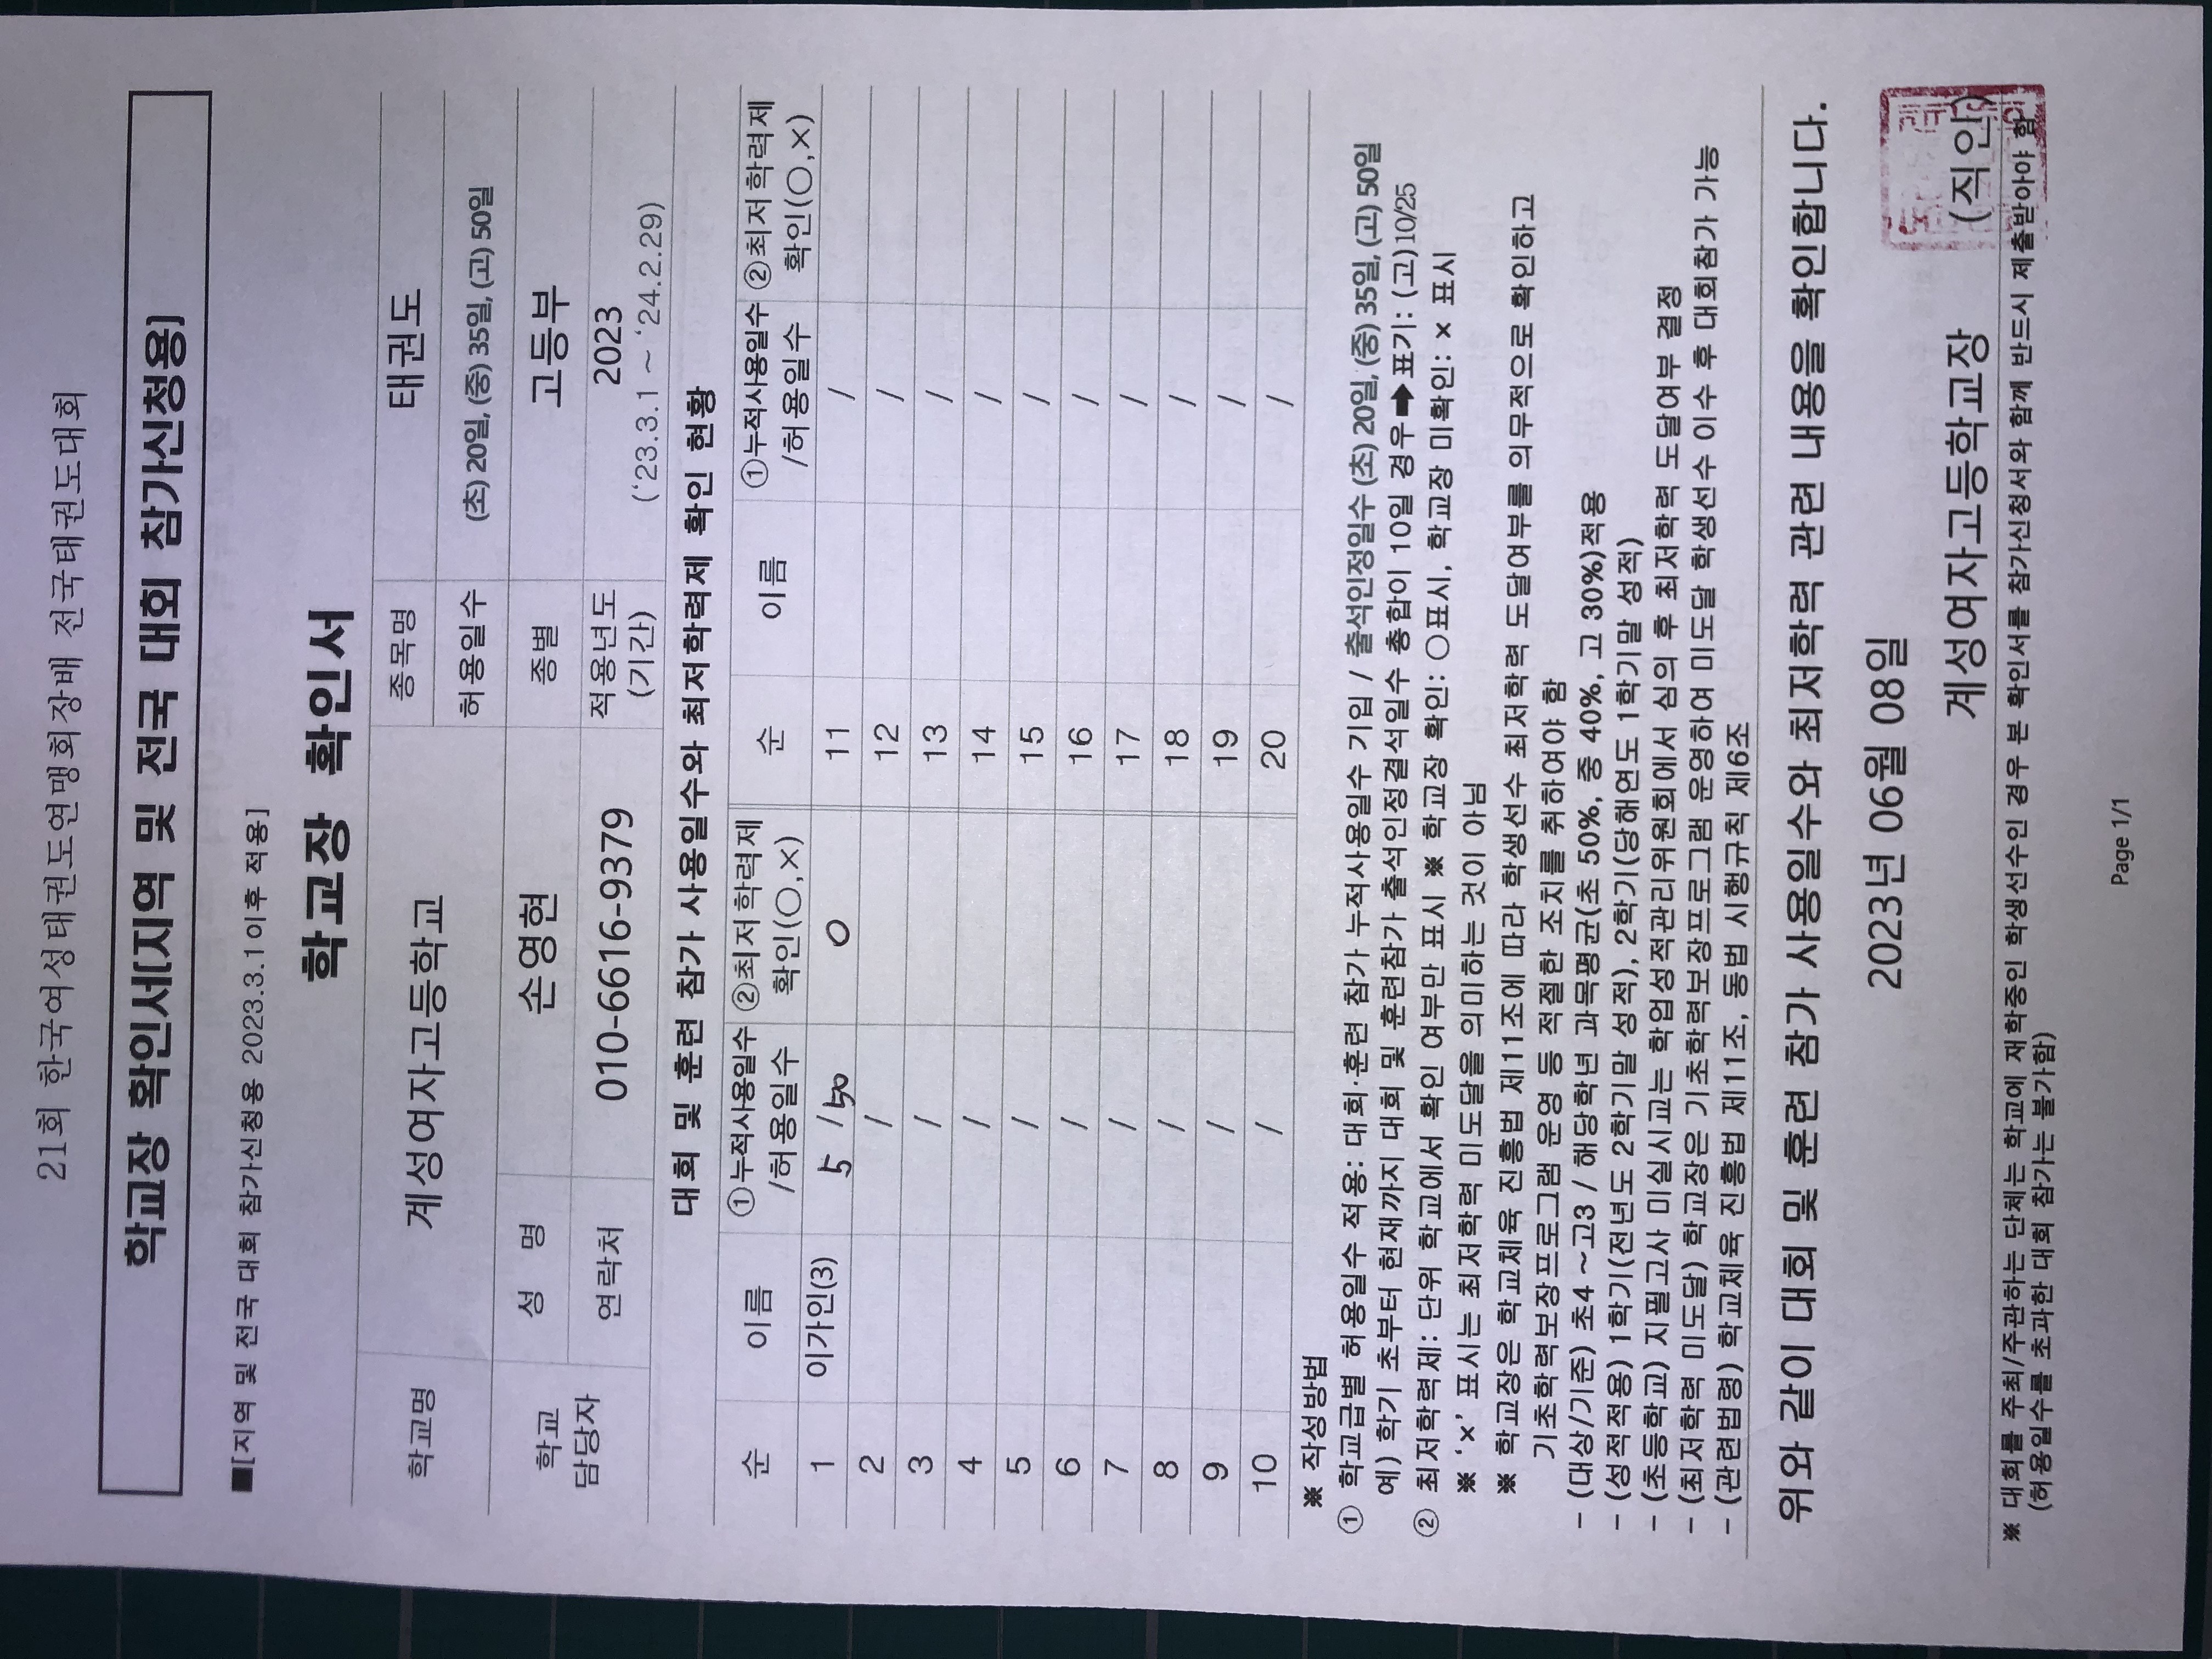 21회 한국여성태권도연맹회장배 전국태권도대회
학교장 확인서[지역 및 전국 대회 참가신청용]
■[지역 및 전국 대회 참가신청용 2023.3.1이후 적용]
학교장 확인서
학교명 계성여자고등학교 종목명 태권도
허용일수 (초) 20일, (중) 35일, (고) 50일
학교 담당자 성 명 손영현 종별 고등부
연락처 010-6616-9379 적용년도 (기간) 2023 ('23.3.1 ~ '24.2.29)
대회 및 훈련 참가 사용일수와 최저학력제 확인 현황
순 이름 ①누적사용일수 /허용일수 ②최저학력제 확인(○,×) 순 이름 ①누적사용일수 /허용일수 ②최저학력제 확인(○,×)
1 이가인(3) 5 /50 O 11 /
2 / 12 /
3 / 13 /
4 / 14 /
5 / 15 /
6 / 16 /
7 / 17 /
8 / 18 /
9 / 19 /
10 / 20 /
※ 작성방법
① 학교급별 허용일수 적용: 대회·훈련 참가 누적사용일수 기입 / 출석인정일수 (초) 20일, (중) 35일, (고) 50일
예) 학기 초부터 현재까지 대회 및 훈련참가 출석인정결석일수 총합이 10일 경우➡표기: (고)10/25
② 최저학력제: 단위 학교에서 확인 여부만 표시 ※ 학교장 확인: ○표시, 학교장 미확인: × 표시
※ '×' 표시는 최저학력 미도달을 의미하는 것이 아님
※ 학교장은 학교체육 진흥법 제11조에 따라 학생선수 최저학력 도달여부를 의무적으로 확인하고
기초학력보장프로그램 운영 등 적절한 조치를 취하여야 함
- (대상/기준) 초4 ~고3 / 해당학년 과목평균(초 50%, 중 40%, 고 30%)적용
- (성적적용) 1학기(전년도 2학기말 성적), 2학기(당해연도 1학기말 성적)
- (초등학교) 지필고사 미실시교는 학업성적관리위원회에서 심의 후 최저학력 도달여부 결정
- (최저학력 미도달) 학교장은 기초학력보장프로그램 운영하여 미도달 학생선수 이수 후 대회참가 가능
- (관련법령) 학교체육 진흥법 제11조, 동법 시행규칙 제6조
위와 같이 대회 및 훈련 참가 사용일수와 최저학력 관련 내용을 확인합니다.
2023년 06월 08일
계성여자고등학교장 (직인)
※ 대회를 주최/주관하는 단체는 학교에 재학중인 학생선수인 경우 본 확인서를 참가신청서와 함께 반드시 제출받아야 함
(허용일수를 초과한 대회 참가는 불가함)
Page 1/1